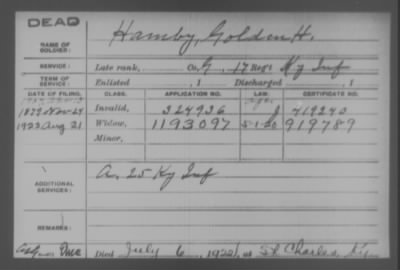 DEAD
Hamby, Golden H.
NAME OF SOLDIER:
SERVICE: Late rank, Co. G, 17 Reg't Ky Inf
TERM OF SERVICE: Enlisted , 1 Discharged , 1
DATE OF FILING. CLASS. APPLICATION NO. LAW. CERTIFICATE NO.
1879 Nov 24 Invalid, 324936 419240
1922 Aug 21 Widow, 1193097 5-1-20 919789
Minor,
ADDITIONAL SERVICES: A. 25 Ky Inf
REMARKS:
Died July 6, 1922, at St Charles, Ky.